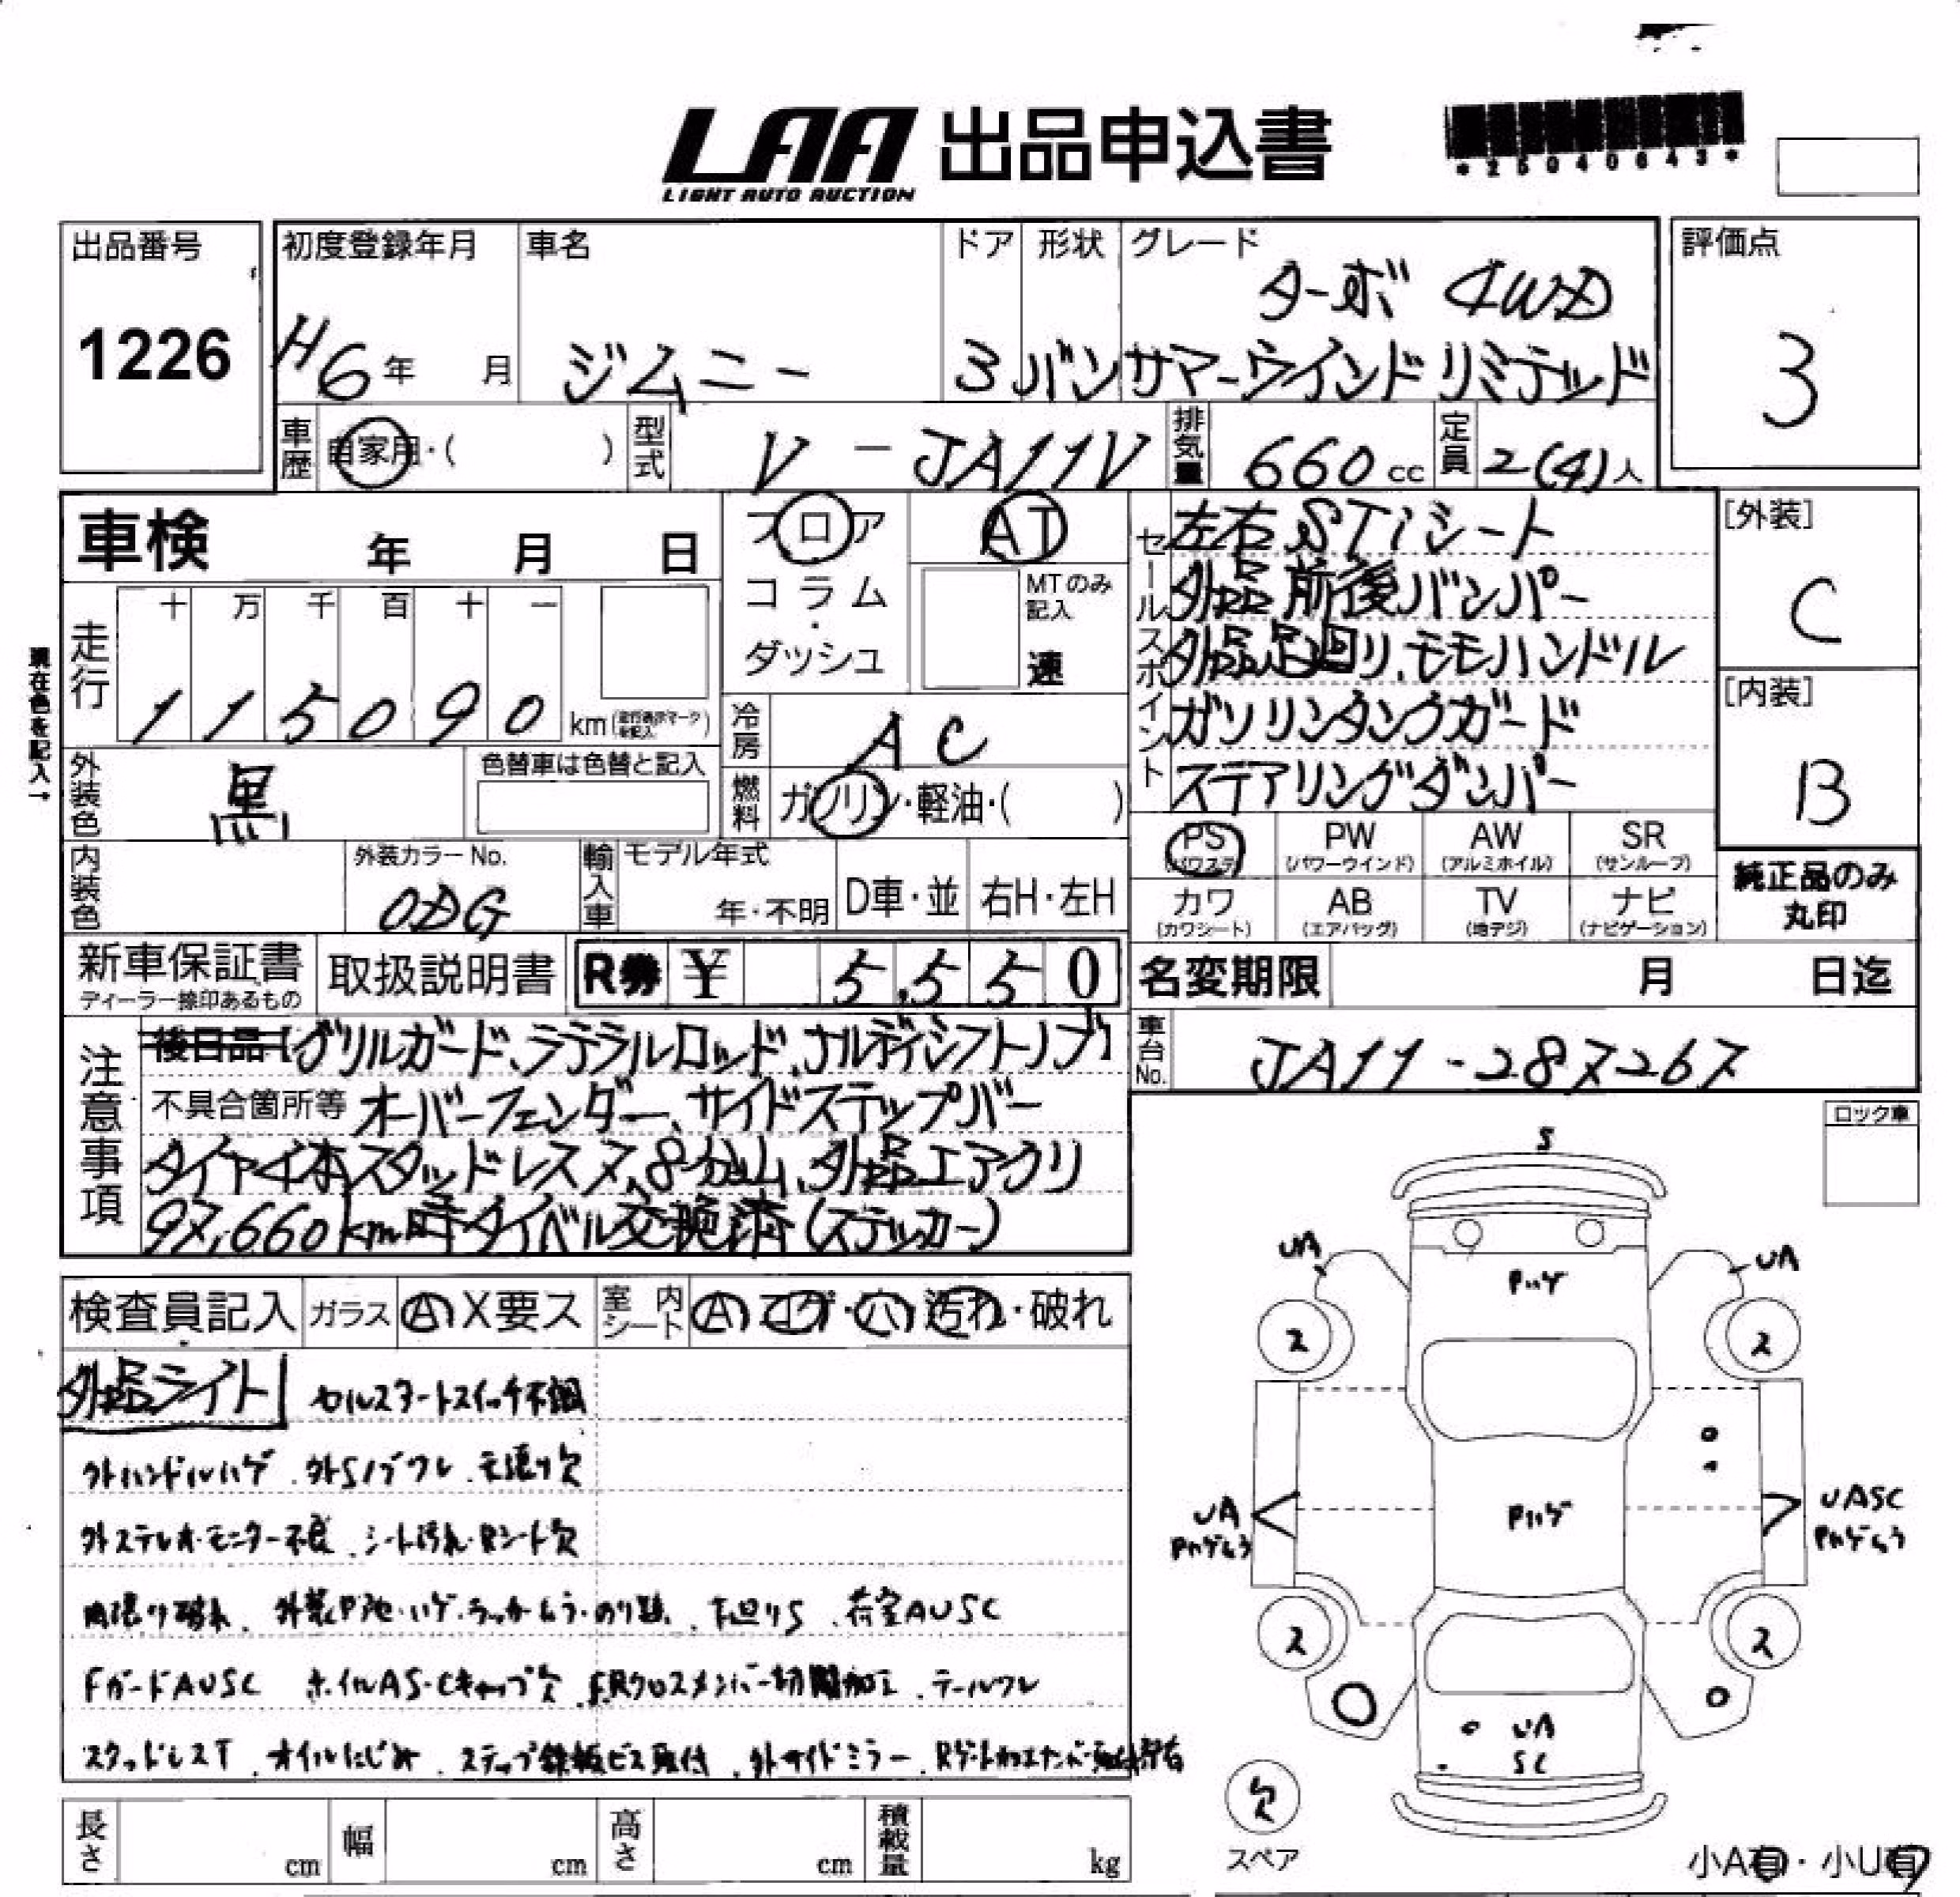 LAA 出品申込書
LIGHT AUTO AUCTION
*25040643*
出品番号
1226
初度登録年月
H6年 月
車名
ジムニー
ドア
3
形状
バン
グレード
ターボ 4WD
サマーウインドリミテッド
評価点
3
車歴 自家用・( )
型式 V-JA11V
排気量 660cc
定員 2(4)人
車検 年 月 日
フロア
コラム
・
ダッシュ
AT
MTのみ記入
速
セールスポイント
左右STiシート
外品前後バンパー
外品足回り、モモハンドル
ガソリンタンクガード
ステアリングダンパー
[外装]
C
[内装]
B
現在色を記入→
走行
十 万 千 百 十 一
1 1 5 0 9 0 km
冷房 AC
外装色 黒
色替車は色替と記入
燃料 ガソリン・軽油・( )
内装色
外装カラーNo.
0DG
輸入車 モデル年式
年・不明
D車・並
右H・左H
PS (パワステ)
PW (パワーウインド)
AW (アルミホイル)
SR (サンルーフ)
カワ (カワシート)
AB (エアバッグ)
TV (地デジ)
ナビ (ナビゲーション)
純正品のみ
丸印
新車保証書
ディーラー捺印あるもの
取扱説明書
R券 ¥ 5,550
名変期限 月 日迄
車台No. JA11-287267
注意事項
後日品 グリルガード、ラテラルロッド、ナルディシフトノブ
不具合箇所等 オーバーフェンダー、サイドステップバー
タイヤ4本スタッドレス7、8分山、外品エアクリ
97,660km時タイベル交換済(ステッカー)
ロック車
検査員記入 ガラス A X要ス 室内シート A コゲ・穴・汚れ・破れ
外品ライト セルスタートスイッチ不調
外ハンドルハゲ、外Sノブワレ、天張り欠
外ステレオ・モニター不良、シート汚れ・Rシート欠
内張り破れ、下廻りS、荷室AUSC
FガードAUSC ホイルAS・Cキャップ欠 テールワレ
スタッドレスT、オイルにじみ、ステップ鉄板ビス取付、外サイドミラー
S
UA
UA
Pハゲ
2
2
UA
Pハゲムラ
Pハゲ
UASC
Pハゲムラ
2
2
UA
SC
欠
スペア
小A有・小U有
長さ cm
幅 cm
高さ cm
積載量 kg